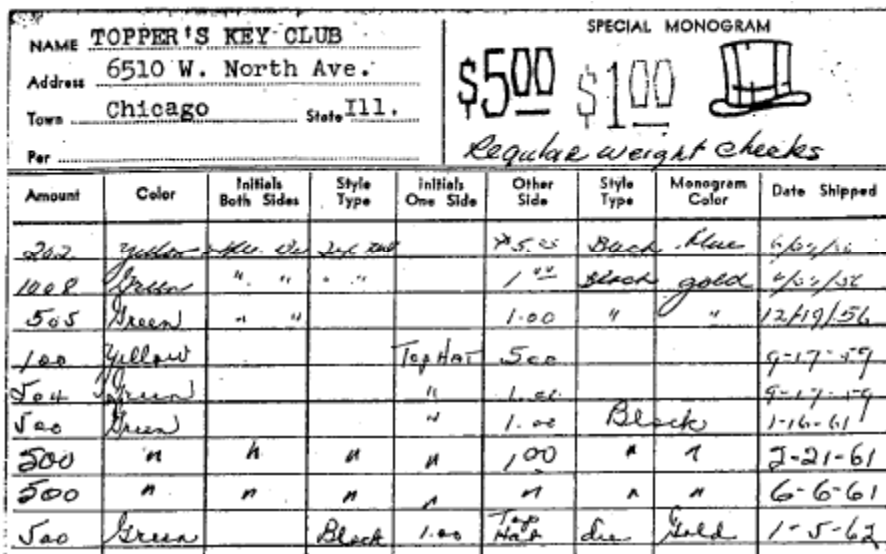 SPECIAL MONOGRAM
NAME TOPPER'S KEY CLUB
Address 6510 W. North Ave.
Town Chicago State Ill.
Per
$5.00 $1.00
Regular weight checks
Amount Color Initials Both Sides Style Type Initials One Side Other Side Style Type Monogram Color Date Shipped
202 Yellow 5.00 Black Blue
1008 Green " " " " 1.00 Black gold
505 Green " " 1.00 " " 12/19/56
100 Yellow Top HAT 5.00 9-17-59
504 Green " 1.00 9-17-59
500 Green " 1.00 Black 1-16-61
500 " " " " 1.00 " " 2-21-61
500 " " " " " " " 6-6-61
500 Green Black 1.00 Top Hat die Gold 1-5-62